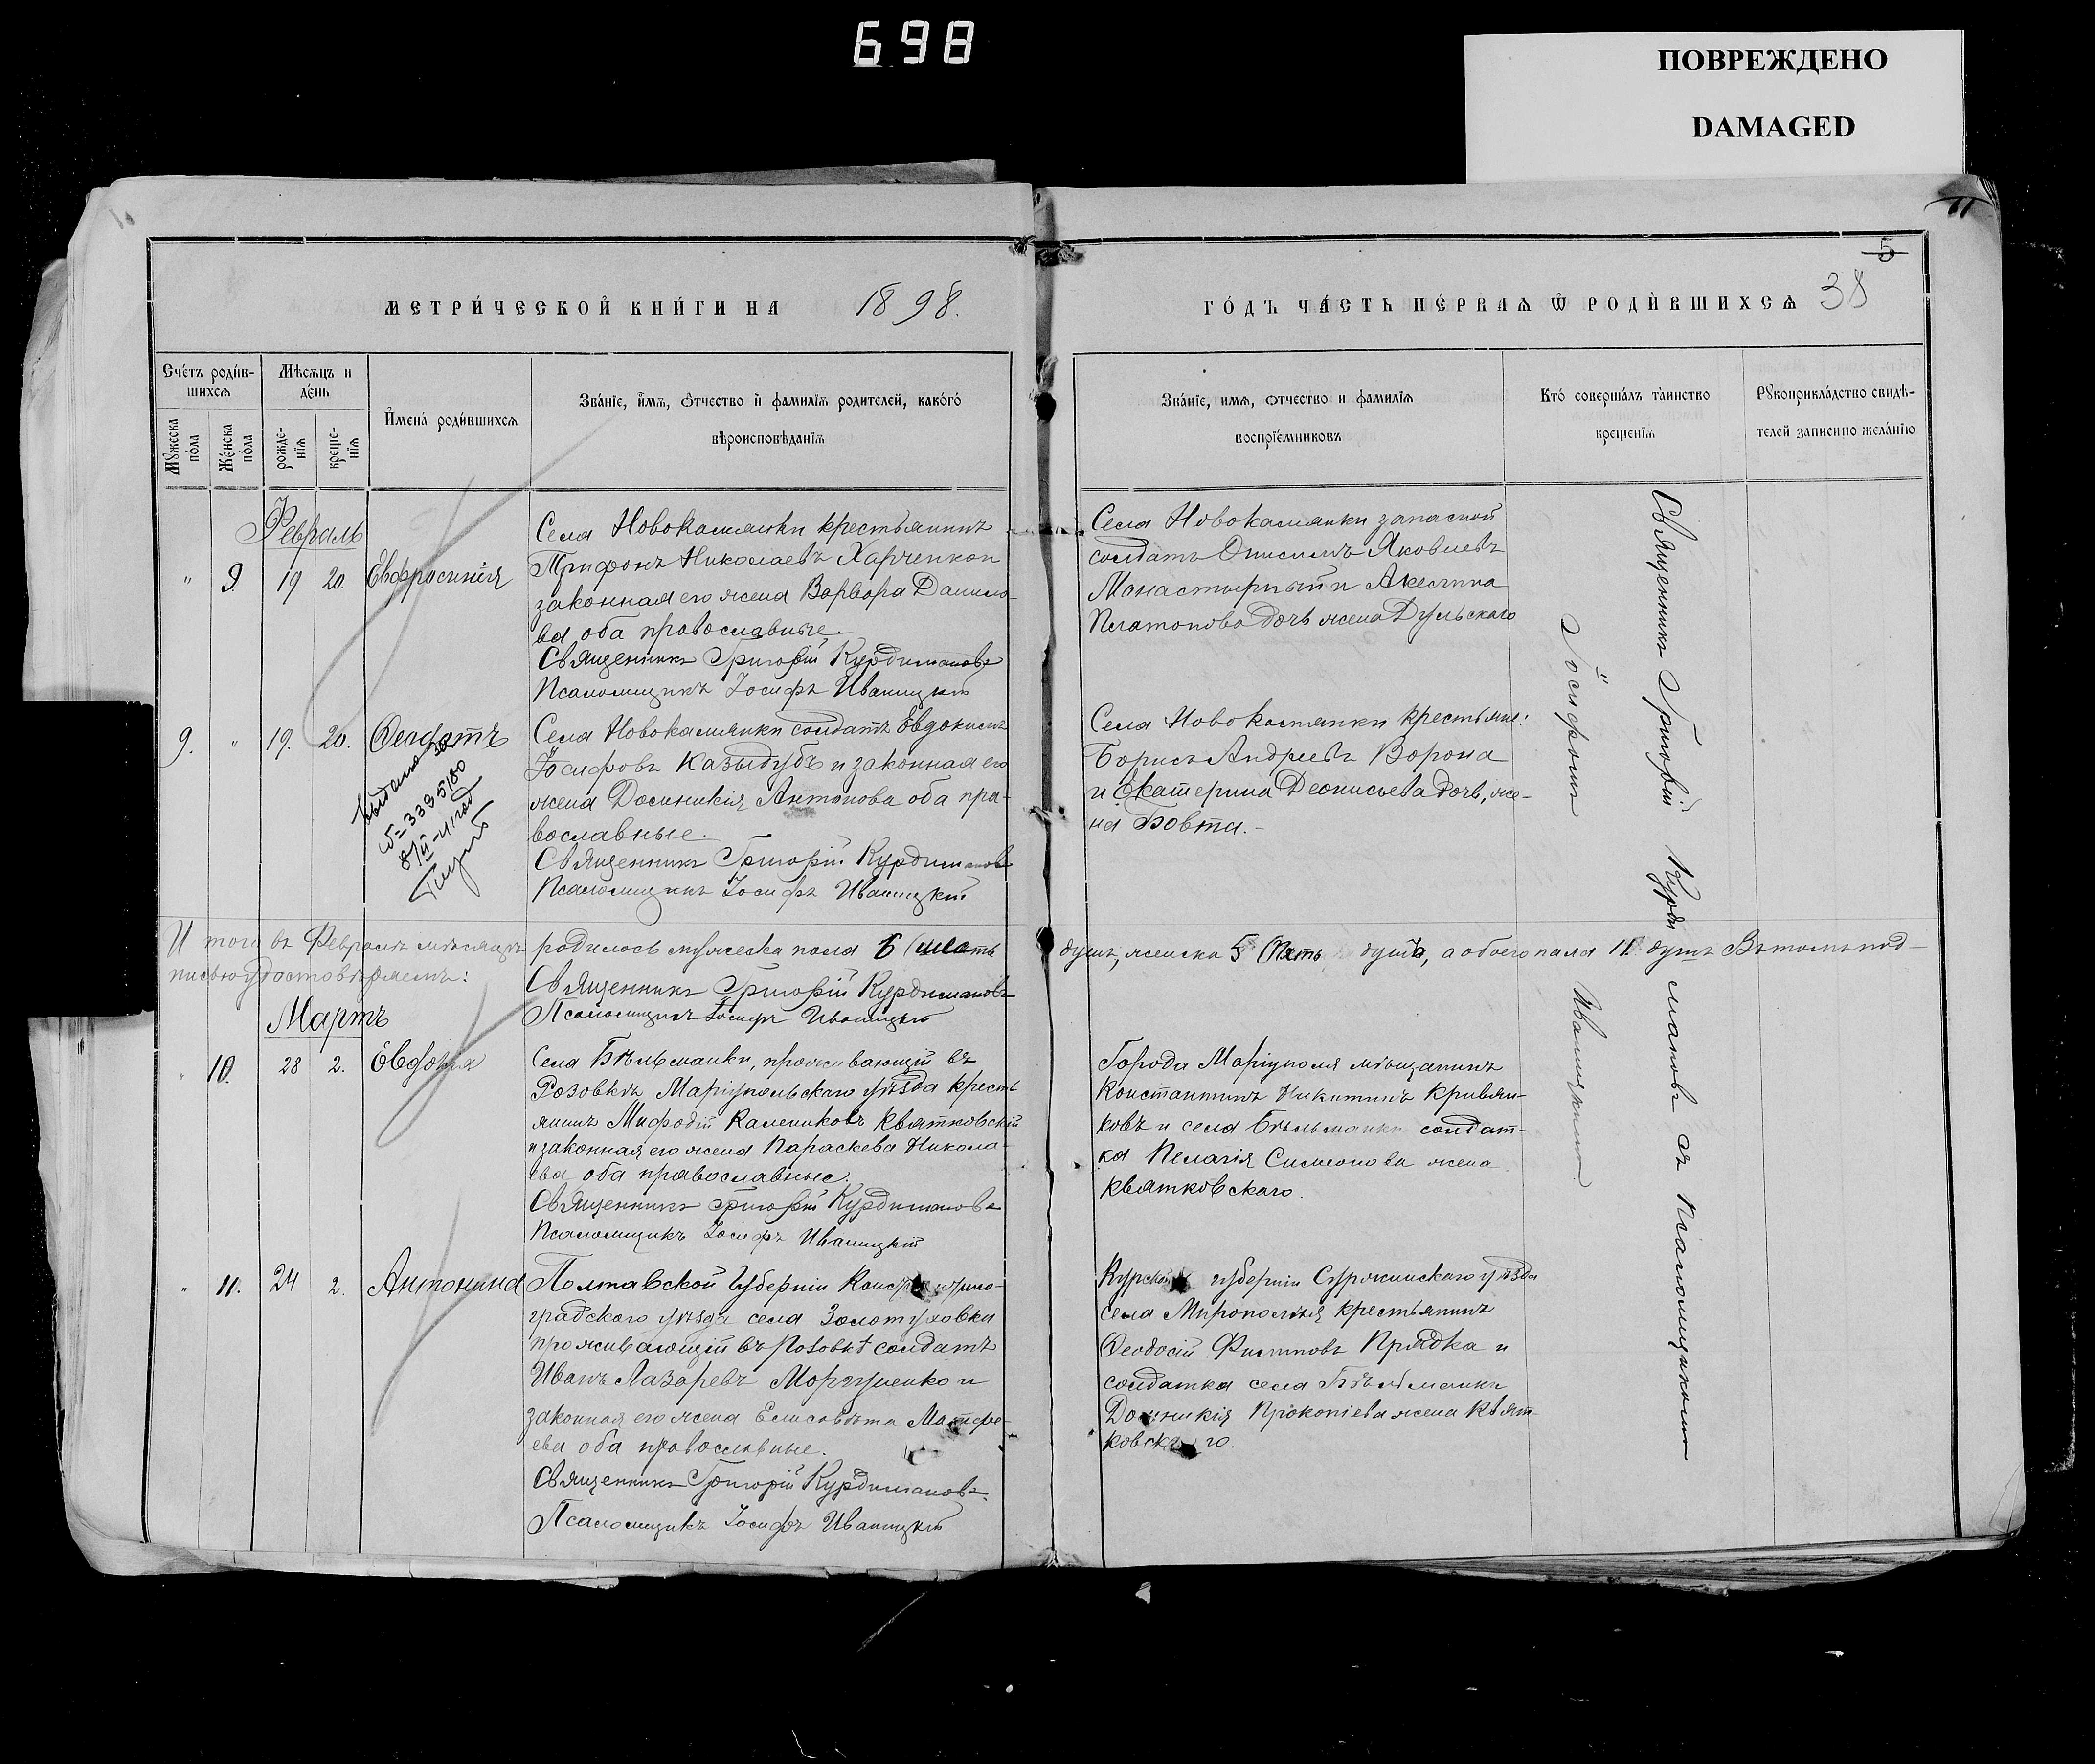 698
ПОВРЕЖДЕНО
DAMAGED
11
5
МЕТРИ́ЧЕСКОЙ КНИ́ГИ НА 1898.
ГО́ДЪ ЧА́СТЬ ПЕ́РВАЯ Ѿ РОДИ́ВШИХСѦ 38
Сче́тъ роди́в-
шихсѧ
Мѣсѧцъ и
де́нь
И҆мена̀ роди́вшихсѧ
Зва́нїе, и҆́мѧ, ѻ҆́тчество и҆ фами́лїѧ роди́телей, како́гѡ
вѣроисповѣ́данїѧ
Мꙋ́жеска
по́ла
Же́нска
по́ла
рожде-
нїѧ
креще-
нїѧ
Зва́нїе, имѧ, ѻтчество и фами́лїѧ
воспрїе́мниковъ
Кто̀ соверша́лъ та̀инство
креще́нїѧ
Рꙋкоприкла́дство свидѣ́-
телей записи по жела́нїю
Февраль
" 9. 19 20. Евфросинія
Села Новокамянки крестьянинъ
Трифонъ Николаевъ Харченко и
законная его жена Варвара Данило-
ва оба православные.
Священникъ Григорій Курдимановъ
Псаломщикъ Іосифъ Иваницкій
Села Новокамянки запасной
солдатъ Онисимъ Яковлевъ
Монастырный и Акелина
Платонова дочь жена Дульскаго
9. " 19. 20. Феодотъ
Села Новокамянки солдатъ Евдокимъ
Іосифовъ Казыдубъ и законная его
жена Домникія Антонова оба пра-
вославные.
Священникъ Григорій Курдимановъ
Псаломщикъ Іосифъ Иваницкій
Села Новокамянки крестьяне:
Борисъ Андреевъ Ворона
и Екатерина Деонисьева дочь, же-
на Бовта.-
Итого въ Февралѣ мѣсяцѣ родилось мужеска пола 6 (шесть
душъ, женска 5 (пять душъ, а обоего пола 11 душъ Въ томъ под-
писью удостовѣряемъ:
Священникъ Григорій Курдимановъ
Псаломщикъ Іосифъ Иваницкій
Мартъ
" 10. 28 2. Евдокія
Села Бѣльманки, проживающій въ
Розовкѣ, Маріупольскаго уѣзда кресть
янинъ Мифодій Калениковъ Квятковскій
и законная его жена Параскева Никола-
ева оба православные.
Священникъ Григорій Курдимановъ
Псаломщикъ Іосифъ Иваницкій
Города Маріуполя мѣщанинъ
Константинъ Никитинъ Кривян-
ковъ и села Бѣльманки солдат-
ка Пелагія Симеонова жена
Квятковскаго.
" 11. 24 2. Антонина
Полтавской губерніи
градскаго уѣзда села Золотуховки
проживающій въ Розовкѣ солдатъ
Иванъ Лазаревъ и
законная его жена Елисавета Матфе-
ева оба православные.
Священникъ Григорій Курдимановъ.
Псаломщикъ Іосифъ Иваницкій
Курской губерніи уѣзда
села Мирополья крестьянинъ
Феодосій Филиповъ Прядка и
солдатка села Бѣльманки
Домникія Прокопіева жена Квят-
ковскаго.
Священникъ Григорій Курдимановъ съ псаломщикомъ
Іосифомъ Иваницкимъ